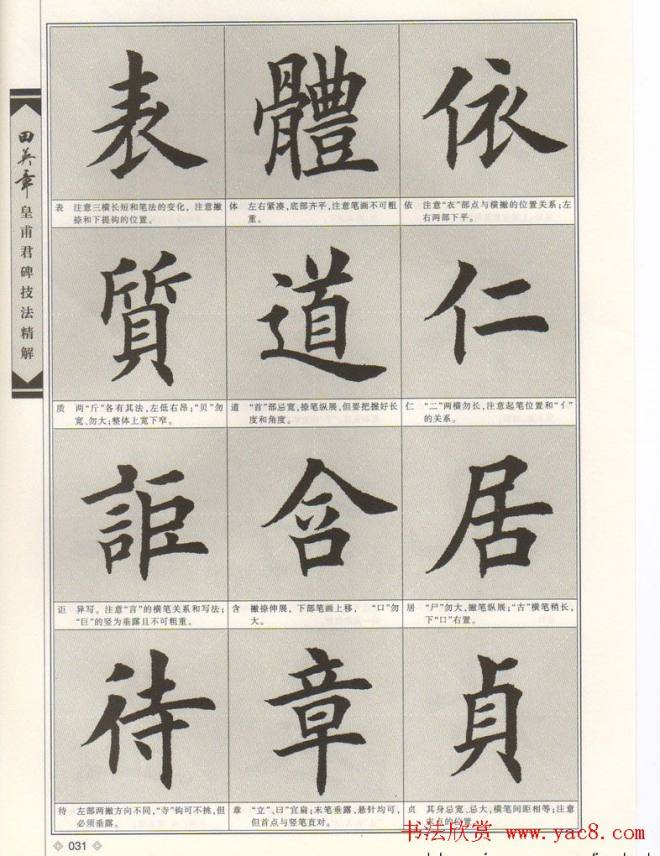 田英章
皇甫君碑技法精解
表 體 依
表 注意三横长短和笔法的变化，注意撇
捺和下提钩的位置。
体 左右紧凑，底部齐平，注意笔画不可粗
重。
依 注意“衣”部点与横撇的位置关系；左
右两部下平。
質 道 仁
质 两“斤”各有其法，左低右昂；“贝”勿
宽、勿大；整体上宽下窄。
道 “首”部忌宽，捺笔纵展，但要把握好长
度和角度。
仁 “二”两横勿长，注意起笔位置和“亻”
的关系。
詎 含 居
讵 异写。注意“言”的横笔关系和写法；
“巨”的竖为垂露且不可粗重。
含 撇捺伸展，下部笔画上移，“口”勿
大。
居 “尸”勿大，撇笔纵展；“古”横笔稍长，
下“口”右置。
待 章 貞
待 左部两撇方向不同，“寺”钩可不挑，但
必须垂露。
章 “立”、“曰”宜扁；末笔垂露、悬针均可，
但首点与竖笔直对。
贞 其身忌宽、忌大，横笔间距相等；注意
末点的位置。
031
书法欣赏 www.yac8.com